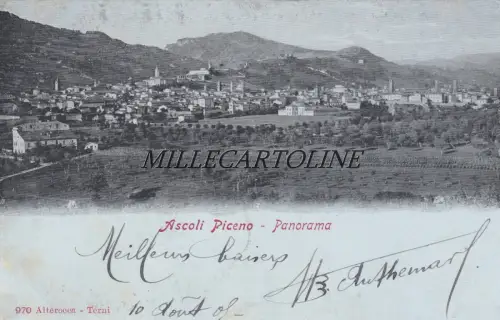 MILLECARTOLINE
Ascoli Piceno - Panorama
Meilleurs baisers
Anthemar
970 Alterocca - Terni
10 Août